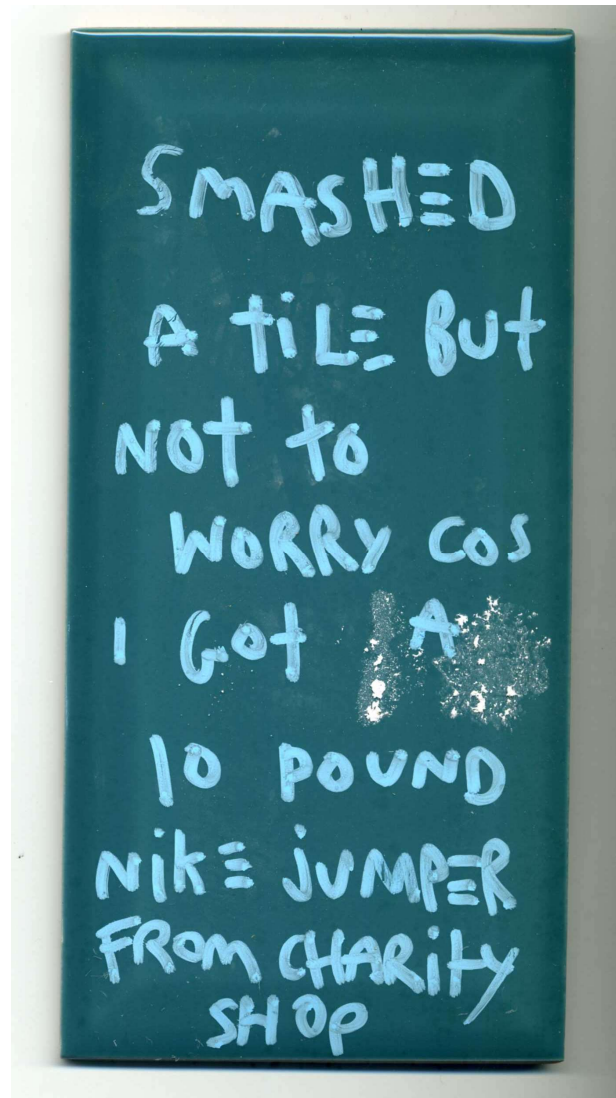 SMASHED
A tiLE BUt
NOt to
WORRY COS
I Got A
10 POUND
NikE jUMPER
FROM CHARity
SHOP